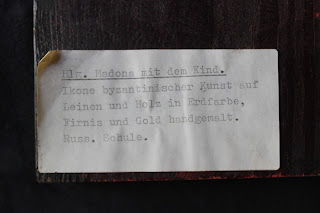 Hlg. Madona mit dem Kind.
Ikone byzantinischer Kunst auf
Leinen und Holz in Erdfarbe,
Firnis und Gold handgemalt.
Russ. Schule.